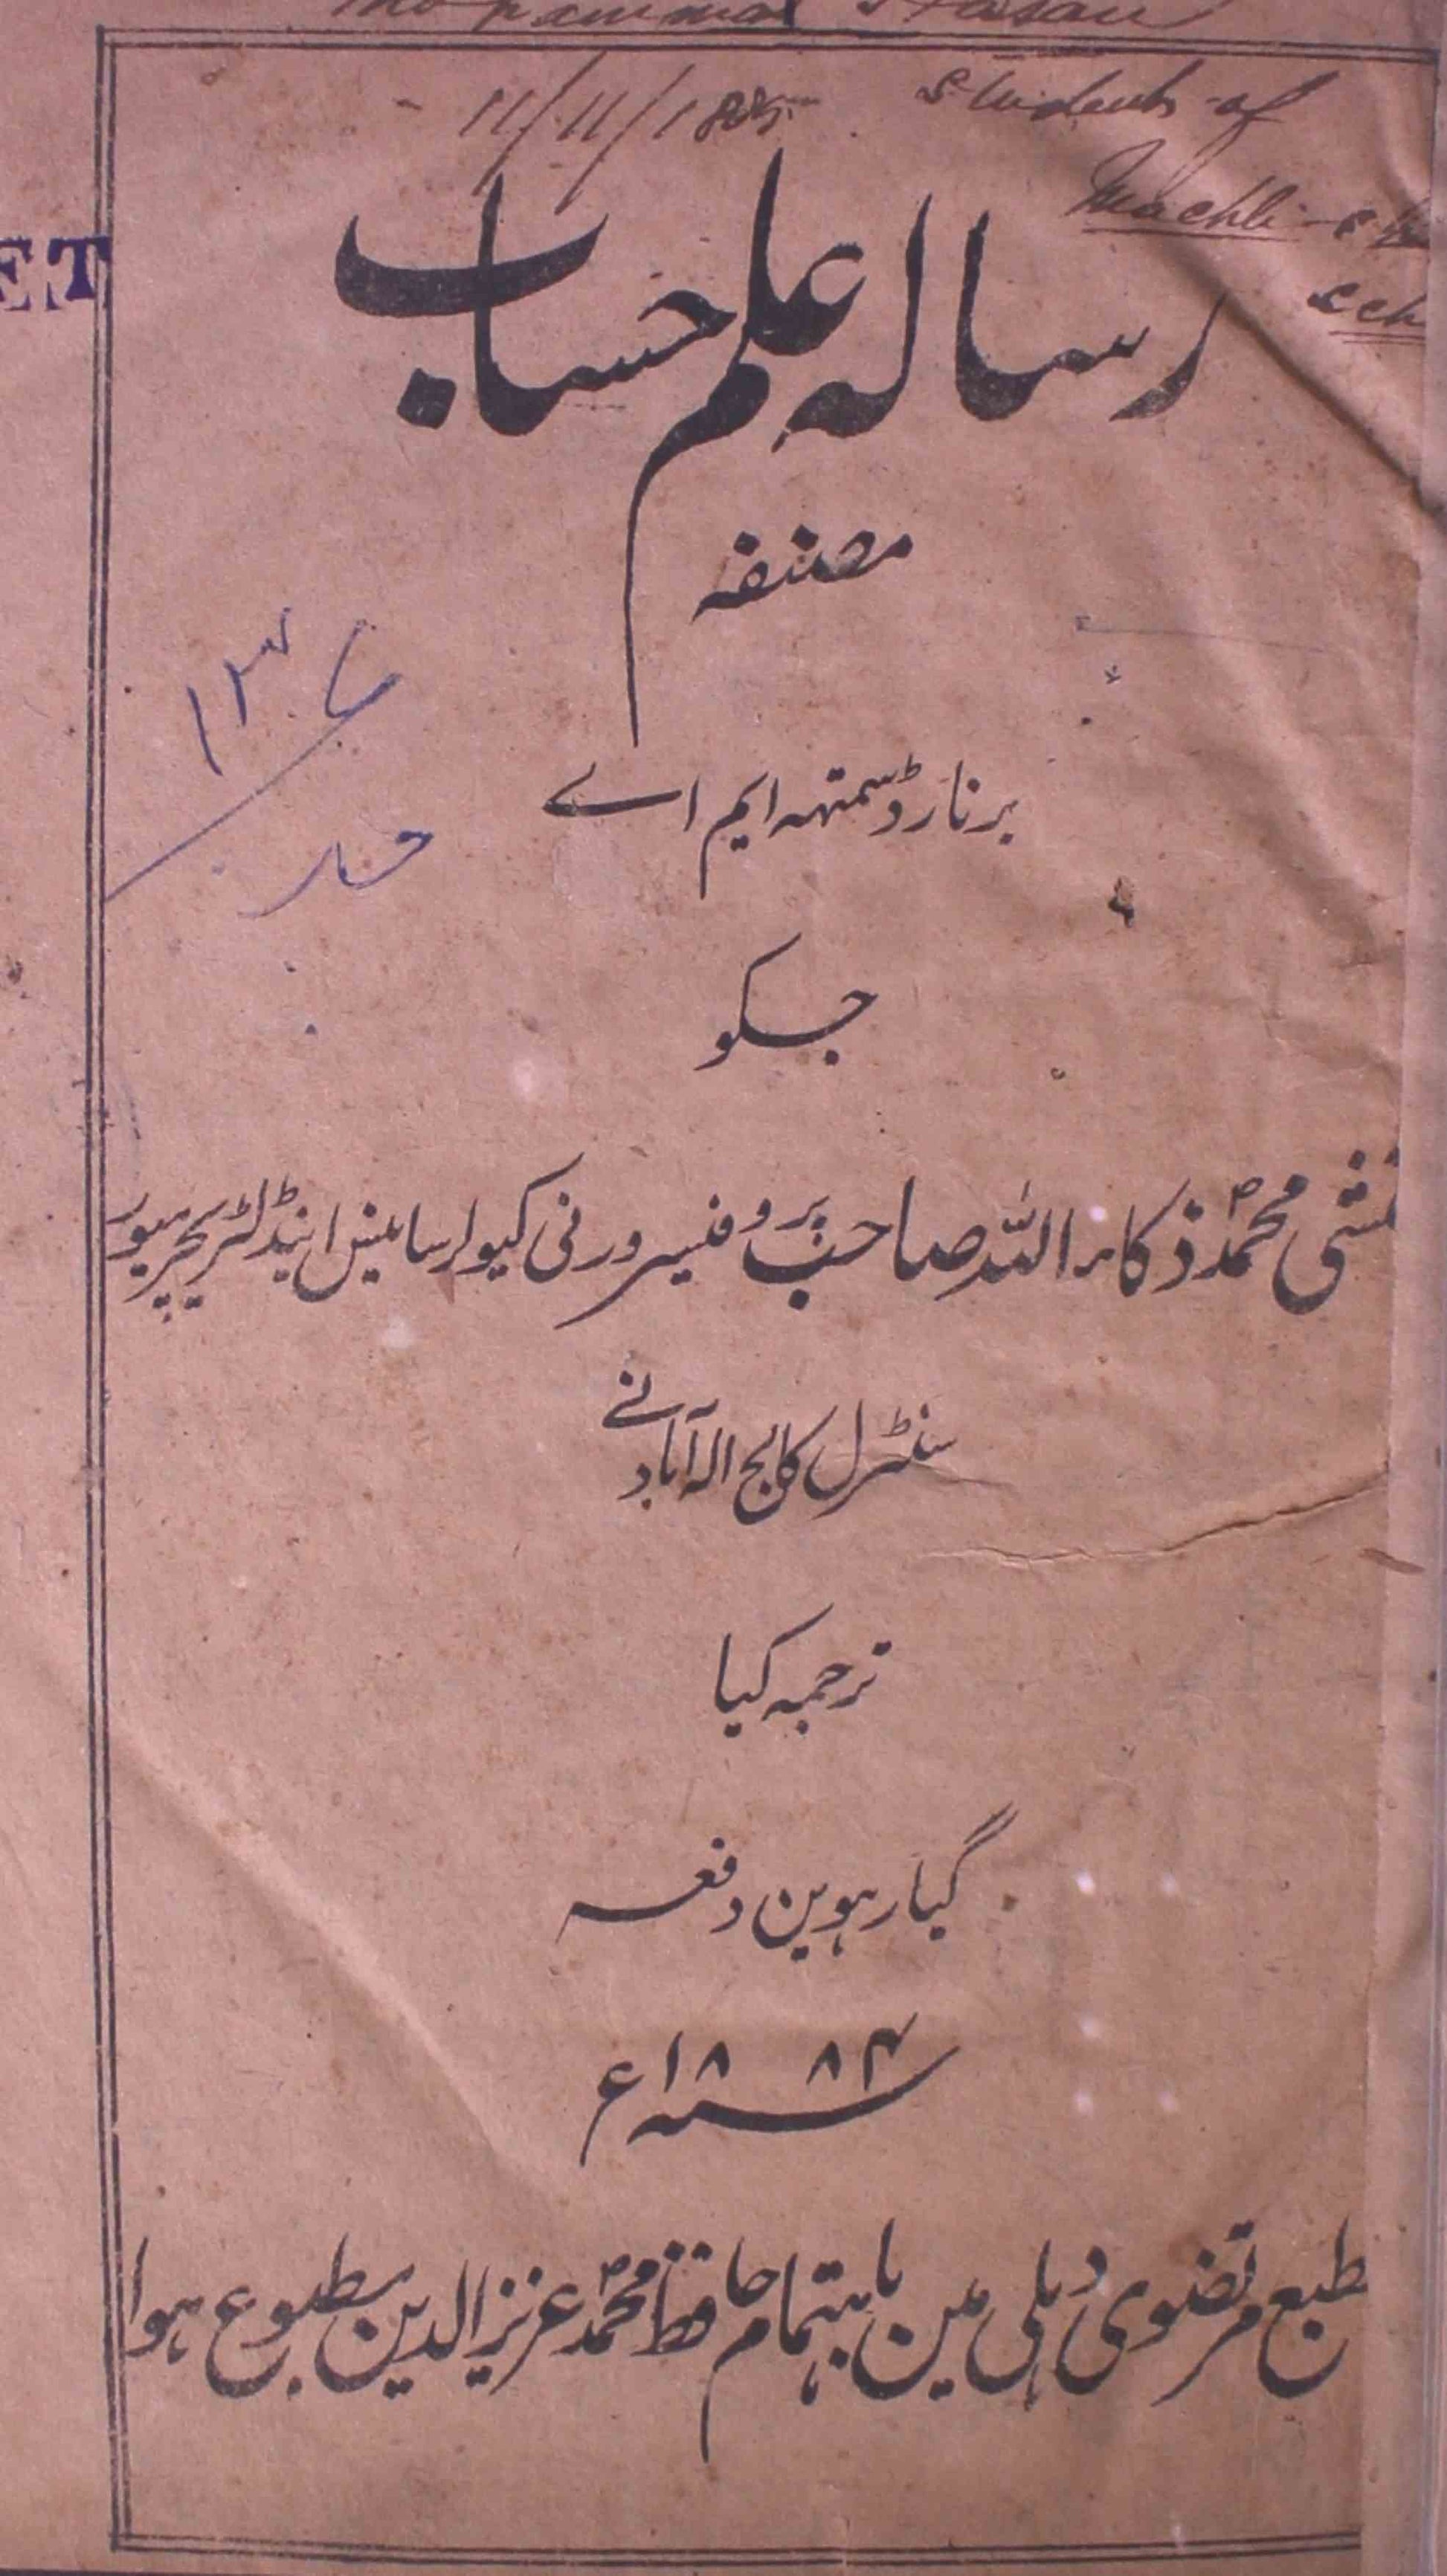 Mohammad Hasan
11/11/188
Students of
Machli
Sch
ET
رساله علم حساب
مصنفہ
۱۳۷
برنارڈ سمتہہ ایم اے
جسکو
منشی محمد ذکاء اللہ صاحب پروفیسر ورنی کیولر سائینس اینڈ لٹریچر میور
سنٹرل کالج الہ آباد نے
ترجمہ کیا
گیارہوین دفعہ
سنہ ۱۸۸۴ء
مطبع مرتضوی دہلی مین باہتمام حافظ محمد عزیز الدین مطبوع ہوا